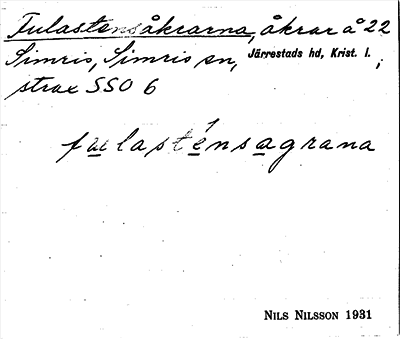 Fulastensåkrarna, åkrar å 22
Simris, Simris sn, Järrestads hd, Krist. l. ;
strax SSO 6
fu̲lasténsa̲grana
NILS NILSSON 1931